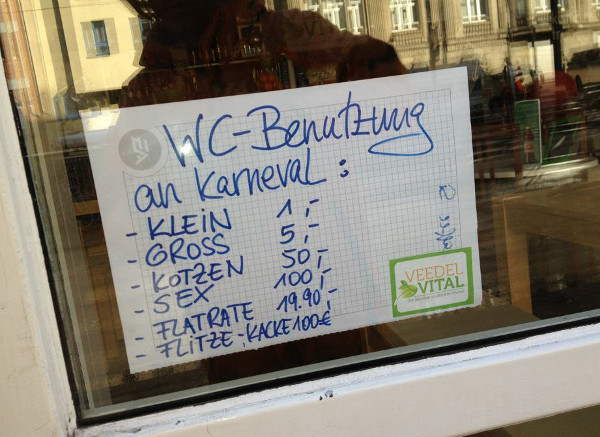 WC-Benutzung
an Karneval:
- KLEIN 1,-
- GROSS 5,-
- KOTZEN 50,-
- SEX 100,-
- FLATRATE 19.90,-
- FLITZE-KACKE 100€
VEEDEL
VITAL